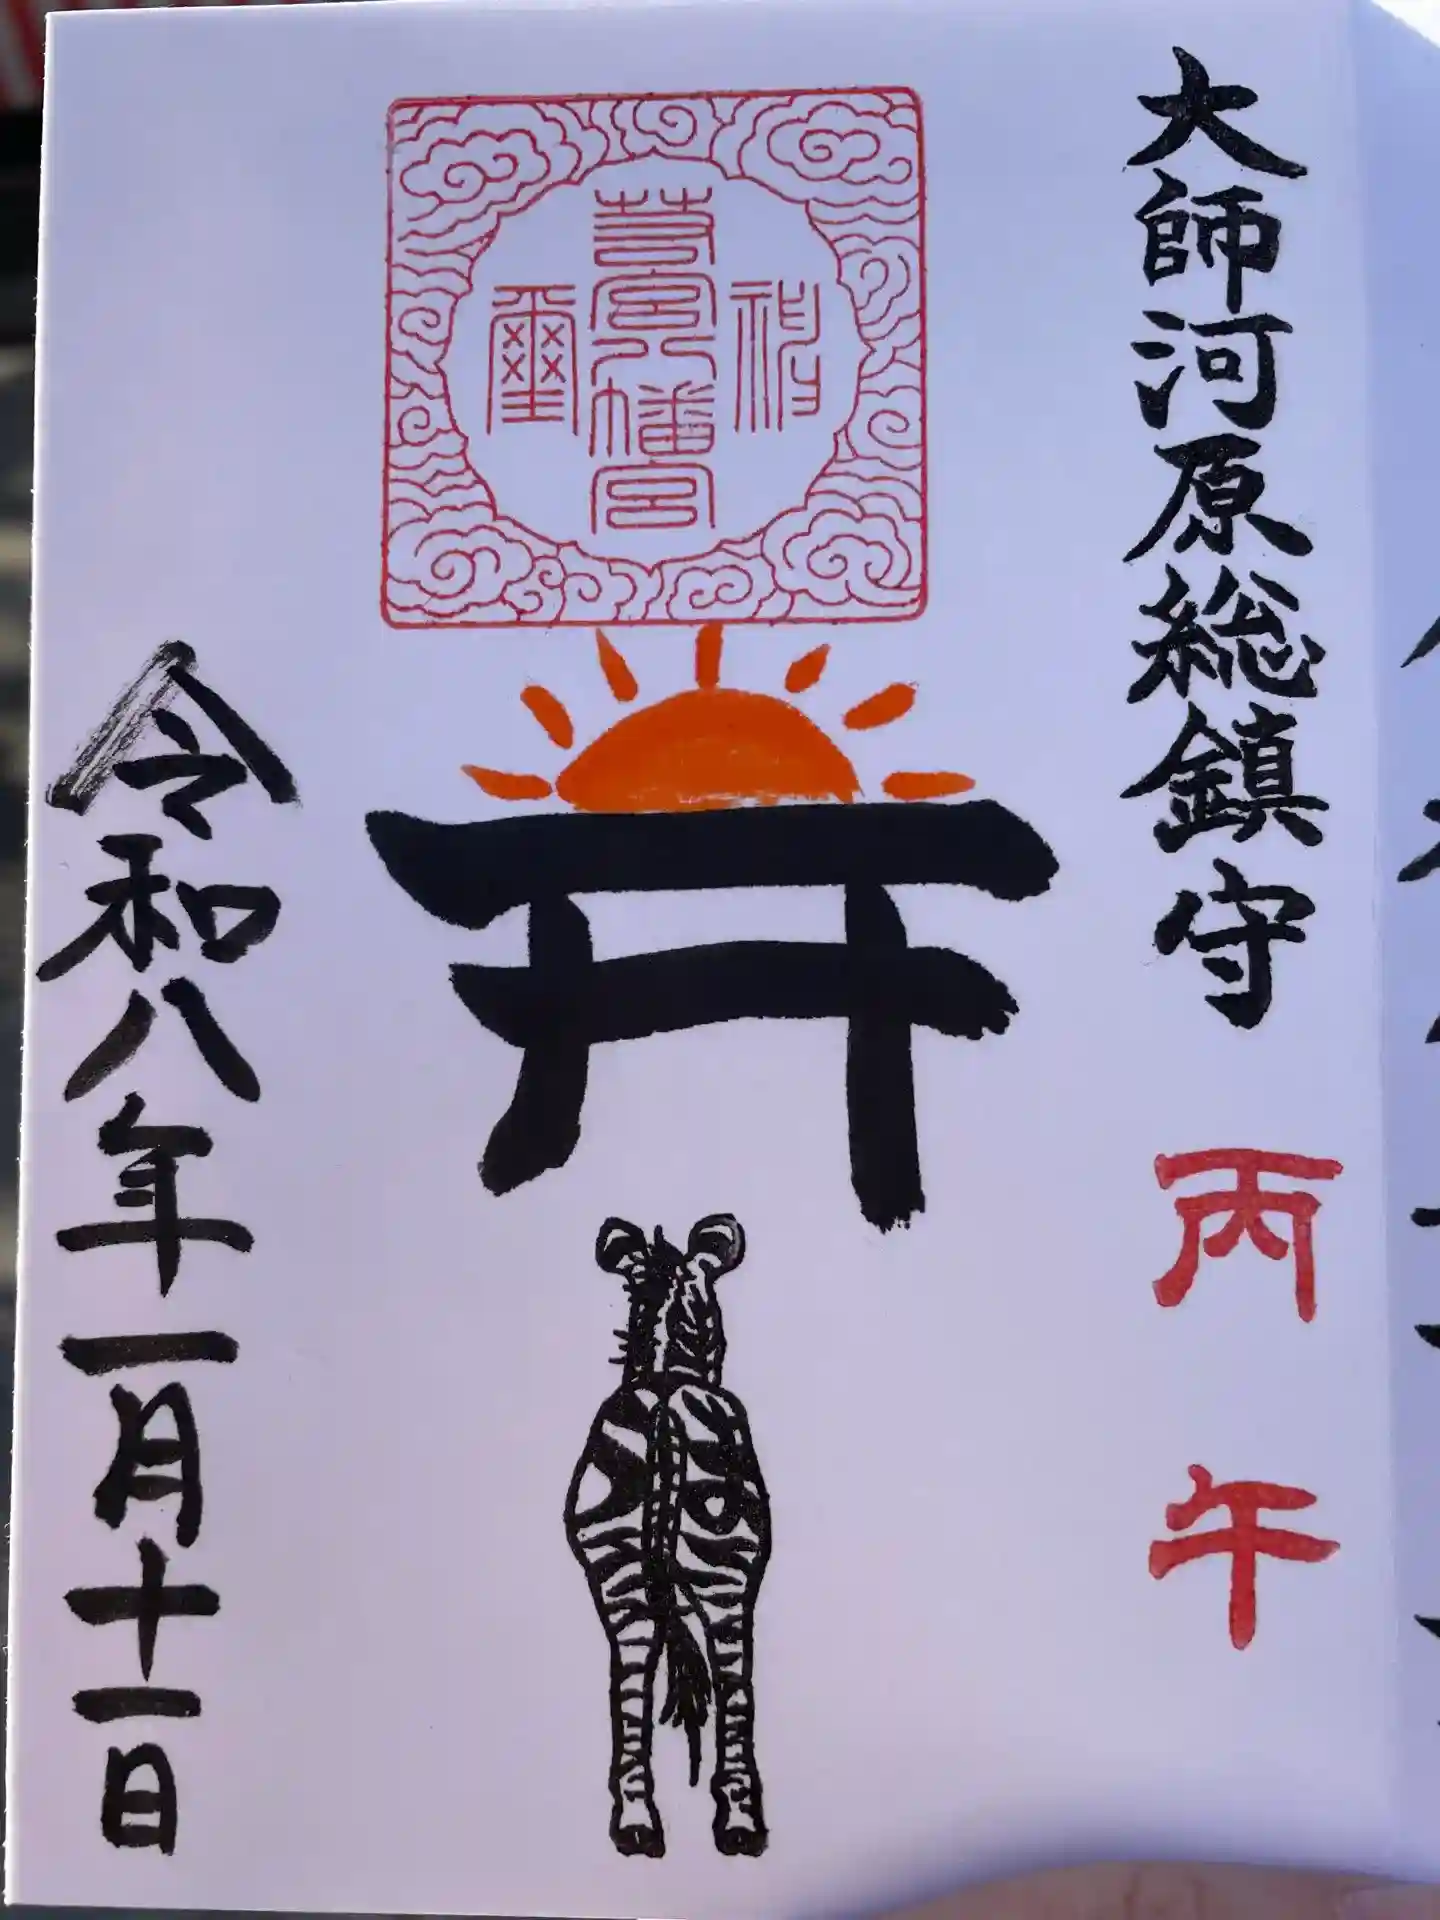 大師河原総鎮守 丙午
神
若宮八幡宮
璽
令和八年一月十一日